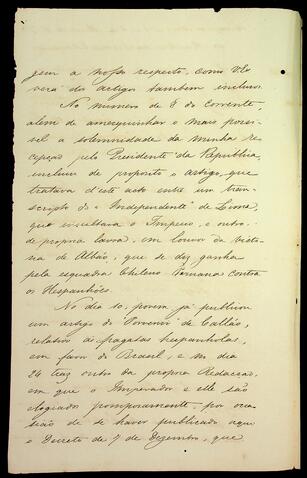 gem a nosso respeito, como V.Ex.
verá dos artigos tambem inclusos.
No numero de 8 do corrente,
alem de amesquinhar o mais possi-
vel a solemnidade da minha re-
cepção pelo Presidente da Republica,
incluiu de proposito o artigo, que
tratava d'este acto entre um tran-
scripto do "Independente" de Lima,
que insultava o Imperio, e outro
de propria lavra, em louvor da victo-
ria de Abtão, que se diz ganha
pela esquadra Chileno Peruana contra
os Hespanhóes.
No dia 10, porem já publicou
um artigo do "Porvenir" de Callão,
relativo ás fragatas hespanholas,
em favor do Brasil, e no dia
24 traz outro da propria Redacção,
em que o Imperador e elle são
elogiados pomposamente, por oca-
sião de se haver publicado aqui
o Decreto de 7 de Dezembro, que